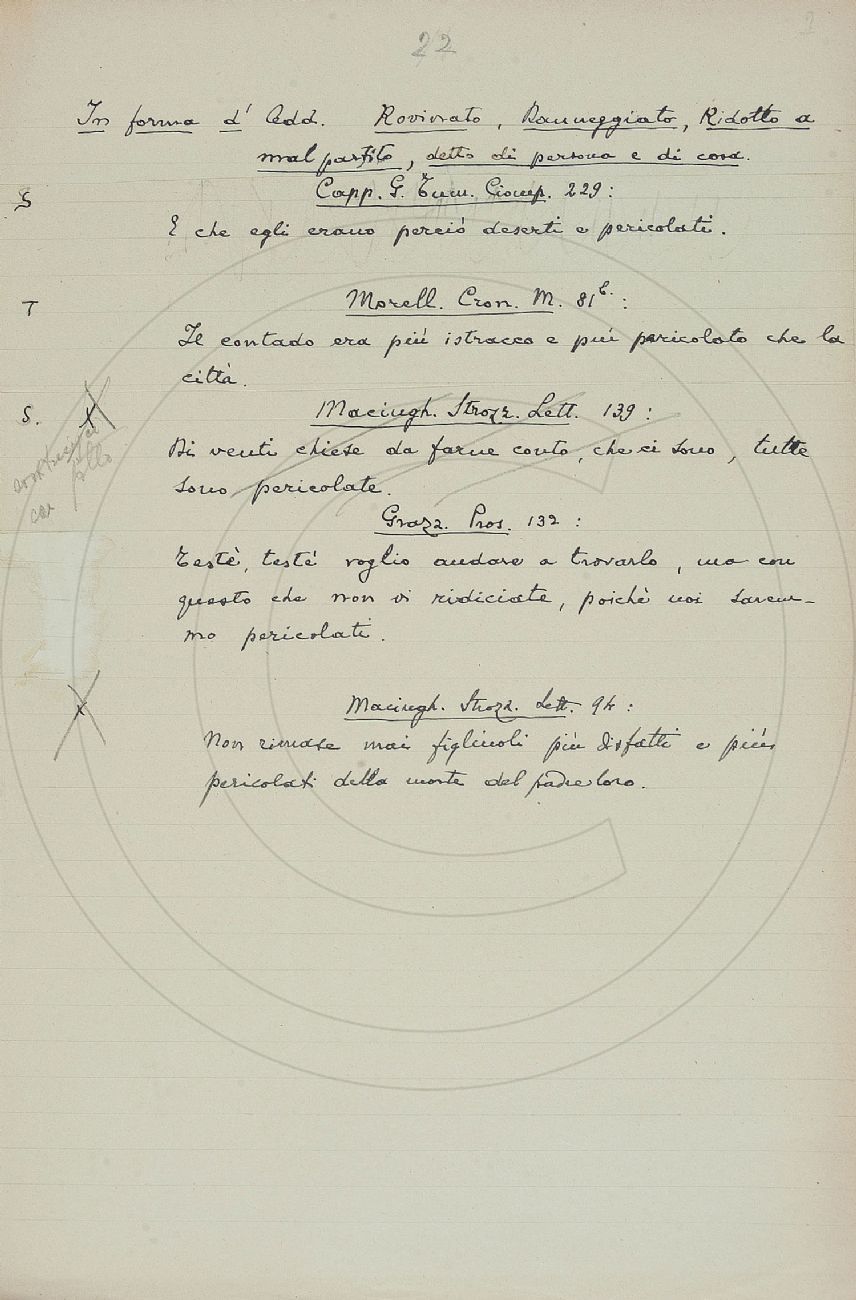 22
In forma d' Add. Rovinato, Danneggiato, Ridotto a
mal partito, detto di persona e di cosa.
S Capp. G. Tum. Ciomp. 229:
E che egli erano perciò deserti e pericolati.
T Morell. Cron. M. 81t.:
Il contado era più istracco e più pericolato che la
città.
S. X Macingh. Strozz. Lett. 139:
Di venti chiese da farne conto, che ci sono, tutte
sono pericolate.
Grazz. Pros. 132:
Testè, testè voglio andare a trovarlo, ma con
questo che non vi ridiciate, poichè noi sarem-
mo pericolati.
X Macingh. Strozz. Lett. 94:
Non rimase mai figliuoli più disfatti e più
pericolati della morte del padre loro.